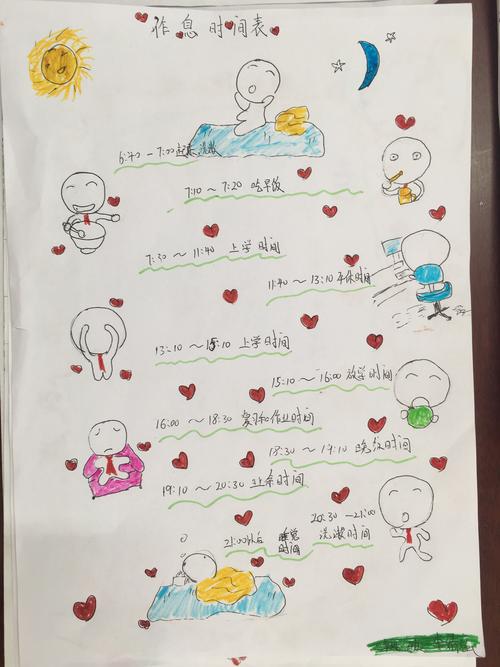 作息时间表
6:40—7:00起床 洗漱
7:10～7:20 吃早饭
7:30～11:40 上学时间
11:40～13:10 午休时间
13:10～15:10 上学时间
15:10～16:00 放学时间
16:00～18:30 复习和作业时间
18:30～19:10 晚饭时间
19:10～20:30 业余时间
20:30—21:00 洗漱时间
21:00以后 睡觉时间